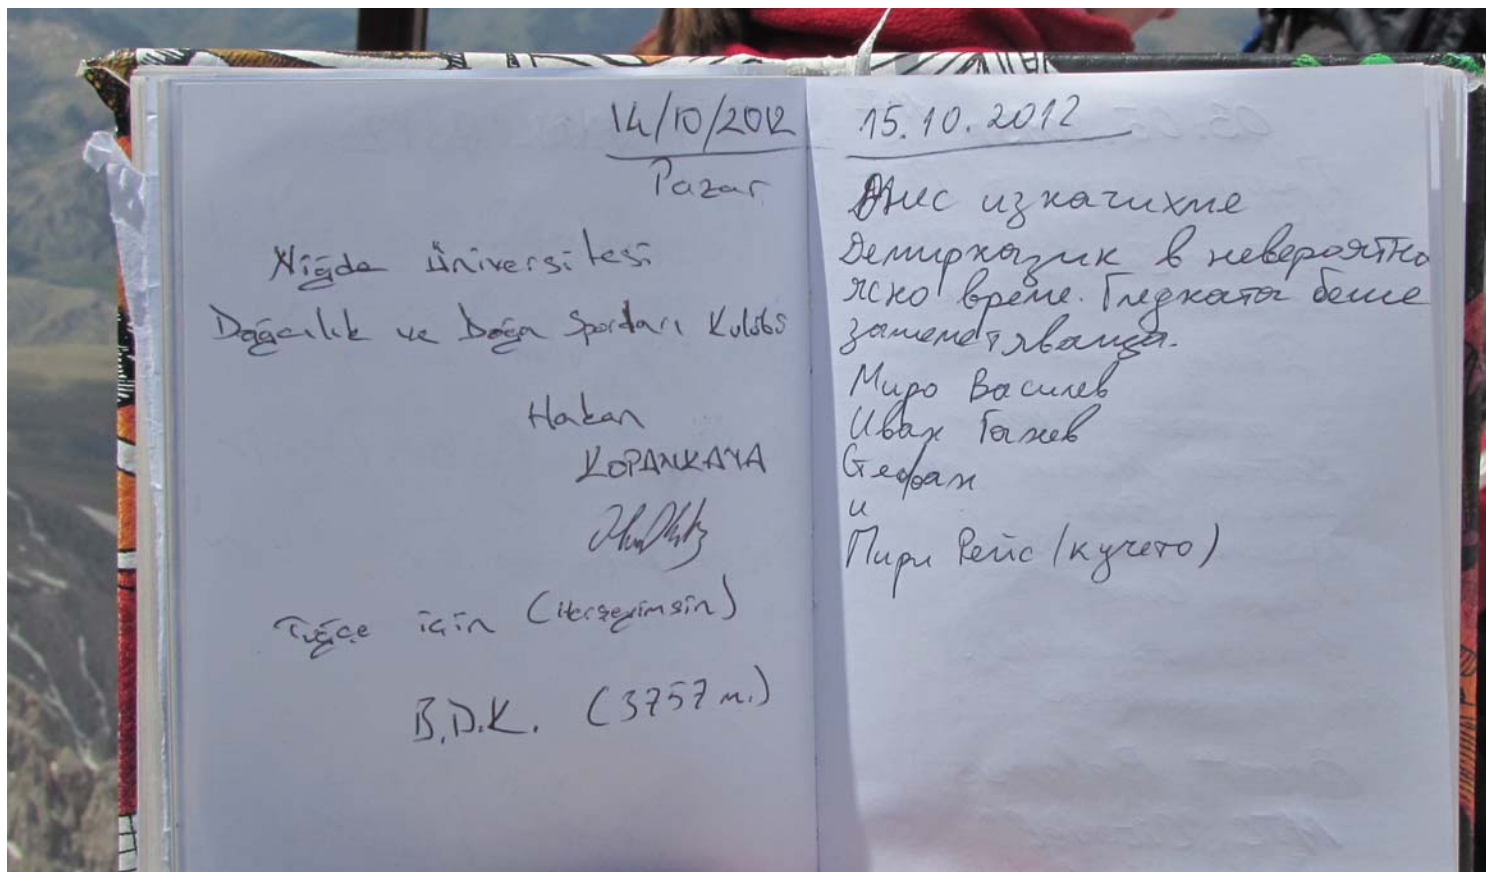 14/10/2012
Pazar
Niğde Üniversitesi
Dağcılık ve Doğa Sporları Kulübü
Hakan
KOPANKAYA
Tuğçe için (Herşeyimsin)
B.D.K. (3757 m.)
15.10.2012
Днес изкачихме
Демирказик в невероятно
ясно време. Гледката беше
зашеметяваща.
Миро Василев
Иван
Стефан
и
Пири Рейс (кучето)